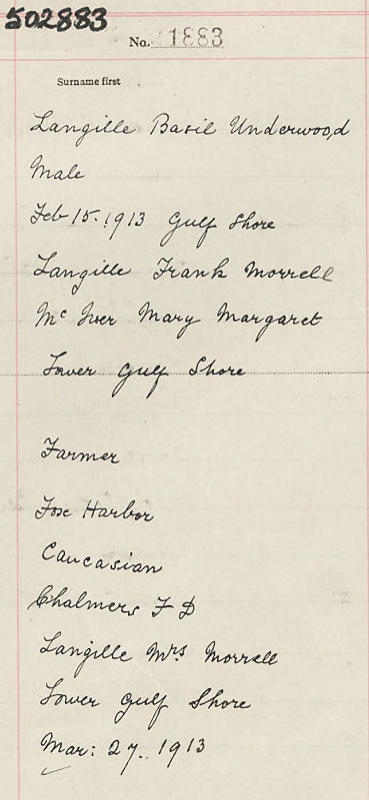 502883
No. 1883
Surname first
Langille Basil Underwood
Male
Feb 15. 1913 Gulf Shore
Langille Frank Morrell
Mc Iver Mary Margaret
Lower Gulf Shore
Farmer
Fox Harbor
Caucasian
Chalmers F D
Langille Mrs Morrell
Lower Gulf Shore
Mar: 27. 1913